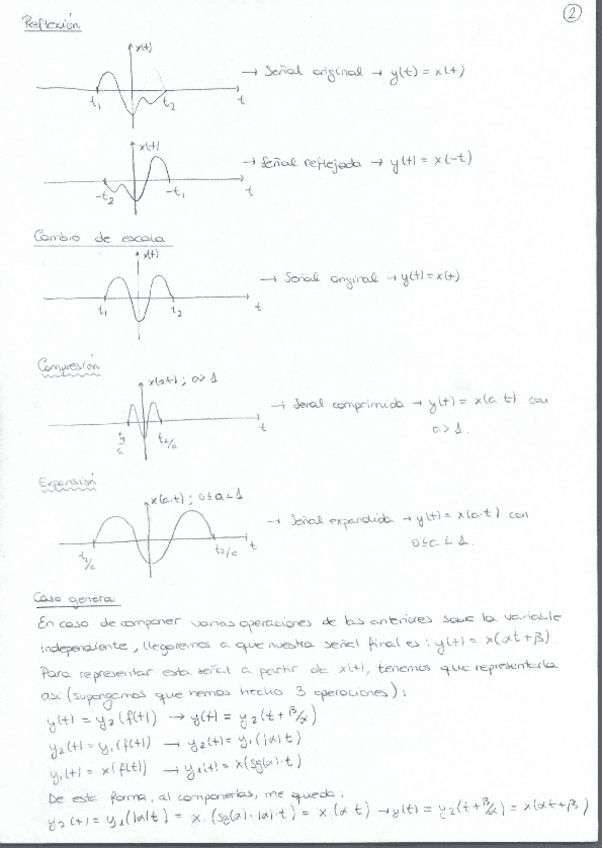 2
Reflexión
x(t)
t₁ t₂ t
→ Señal original → y(t) = x(t)
x(t)
-t₂ -t₁ t
→ Señal reflejada → y(t) = x(-t)
Cambio de escala
x(t)
t₁ t₂ t
→ Señal original → y(t) = x(t)
Compresión
x(a·t) ; a>1
t₁/a t₂/a t
→ Señal comprimida → y(t) = x(a·t) con
a>1.
Expansión
x(a·t) ; 0≤a<1
t₁/a t₂/a t
→ Señal expandida → y(t) = x(a·t) con
0≤a<1.
Caso general
En caso de componer varias operaciones de las anteriores sobre la variable
independiente, llegaremos a que nuestra señal final es: y(t) = x(αt+β).
Para representar esta señal a partir de x(t), tenemos que representarla
así (supongamos que hemos hecho 3 operaciones):
y(t) = y₂(f(t)) → y(t) = y₂(t+β/α)
y₂(t) = y₁(f(t)) → y₂(t) = y₁(|α|t)
y₁(t) = x(f(t)) → y₁(t) = x(sg(α)·t)
De esta forma, al componerlas, me queda:
y₂(t) = y₁(|α|t) = x(sg(α)·|α|·t) = x(αt) → y(t) = y₂(t+β/α) = x(αt+β)